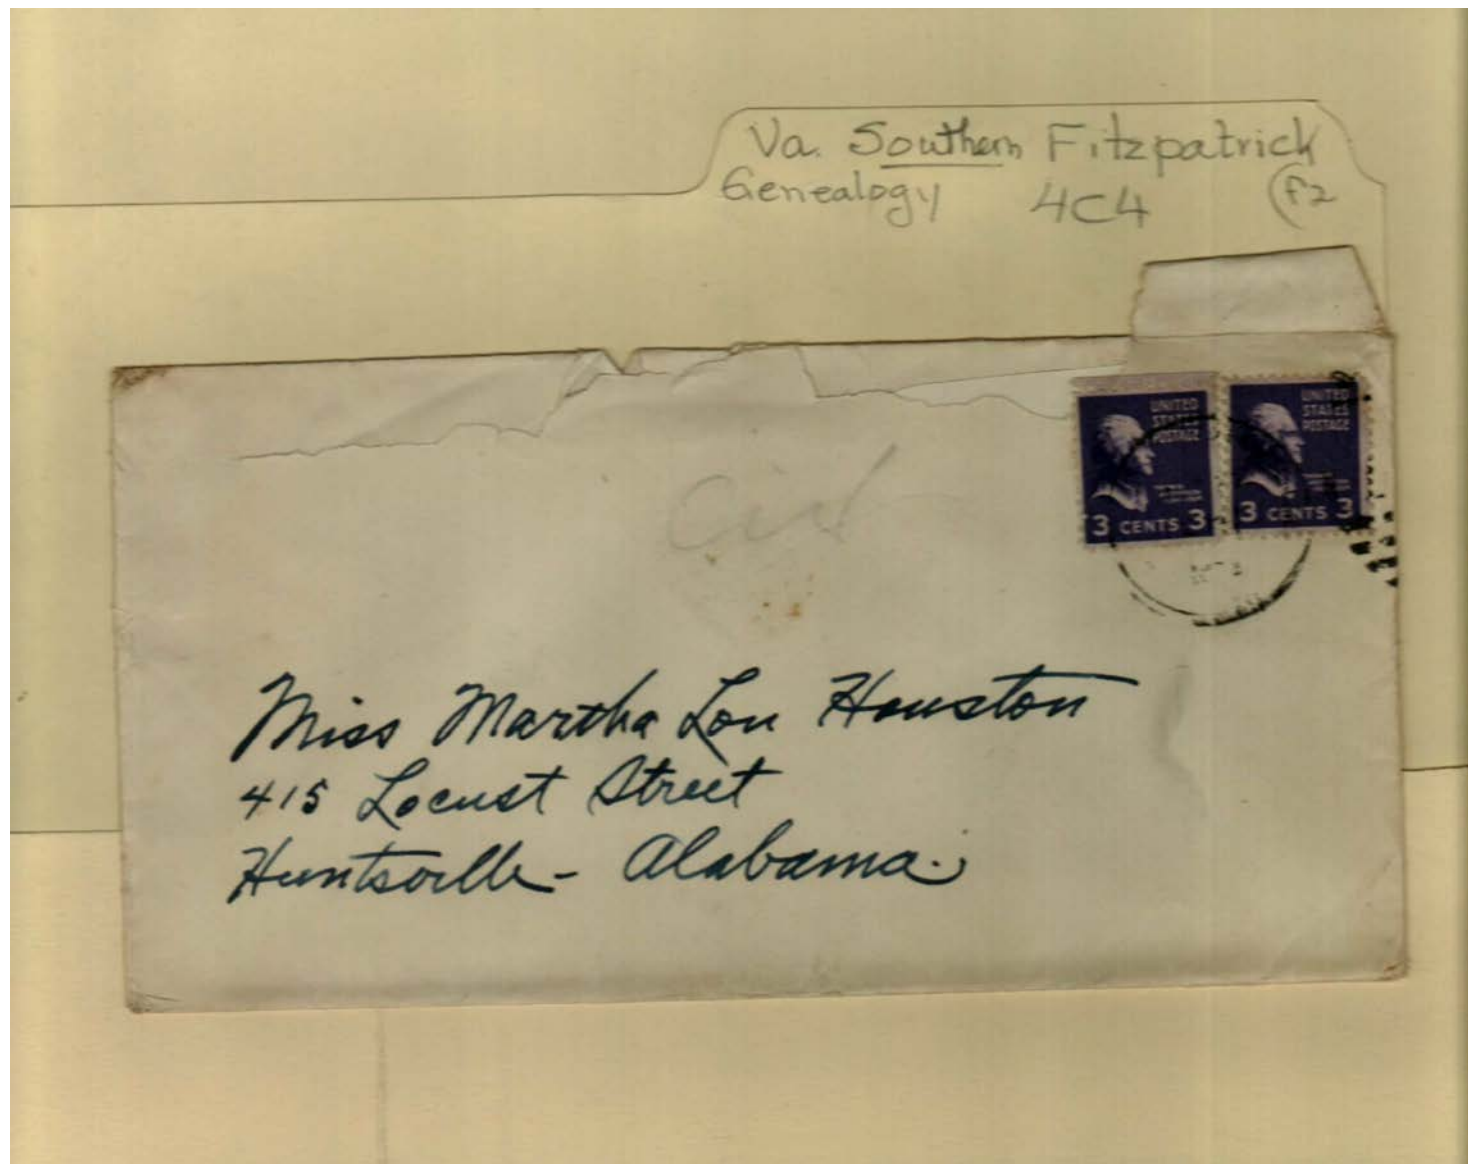 Va. Southern Fitzpatrick
Genealogy 4C4 (F2
UNITED
STATES
POSTAGE
3 CENTS 3
UNITED
STATES
POSTAGE
3 CENTS 3
Miss Martha Lou Houston
415 Locust Street
Huntsville - Alabama.